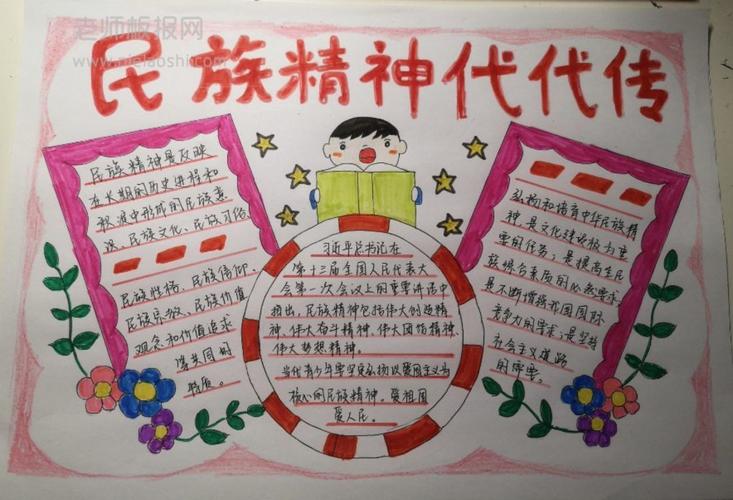 老师板报网
www.cnelaoshi.com
民族精神代代传
民族精神是反映
在长期的历史进程和
积淀中形成的民族意
识、民族文化、民族习俗、
民族性格、民族信仰、
民族宗教、民族价值
观念和价值追求
等共同的
特质。
习近平总书记在
第十三届全国人民代表大
会第一次会议上的重要讲话中
指出,民族精神包括伟大创造精
神、伟大奋斗精神、伟大团结精神、
伟大梦想精神。
当代青少年要坚定弘扬以爱国主义为
核心的民族精神。爱祖国
爱人民。
弘扬和培育中华民族精
神,是文化建设极为重
要的任务;是提高全民
族综合素质的必然要求
是不断增强我国国际
竞争力的要求;是坚持
社会主义道路
的需要。